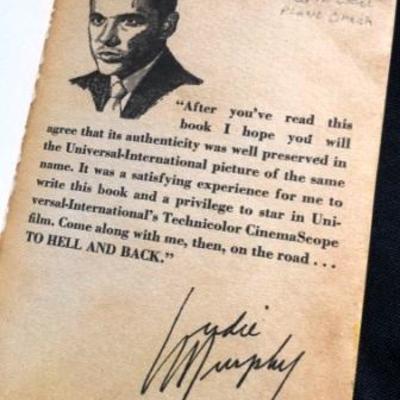 PLANE CRASH
"After you've read this
book I hope you will
agree that its authenticity was well preserved in
the Universal-International picture of the same
name. It was a satisfying experience for me to
write this book and a privilege to star in Uni-
versal-International's Technicolor CinemaScope
film. Come along with me, then, on the road . . .
TO HELL AND BACK."
Audie
Murphy